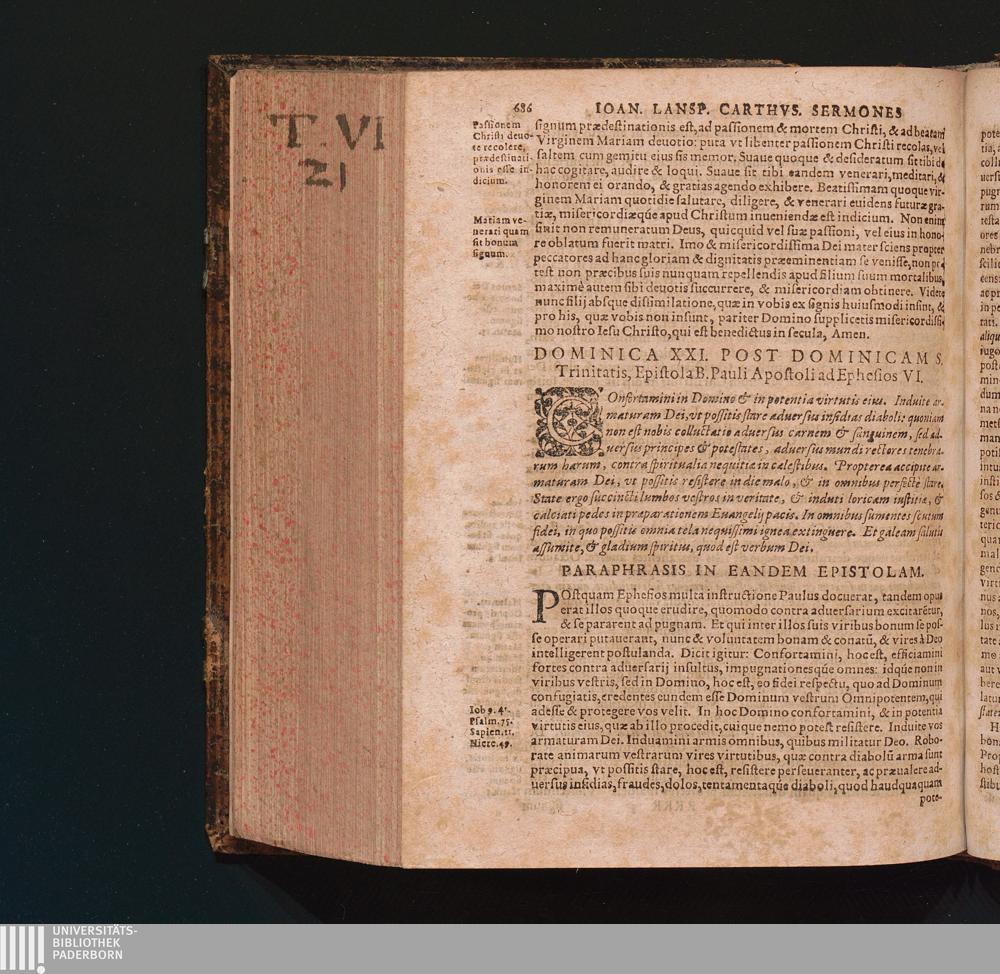 T. VI
21
686 IOAN. LANSP. CARTHVS. SERMONES
Passionem
Christi deuo-
te recolere,
prædestinati-
onis esse in-
dicium.
Mariam ve-
nerari quam
sit bonum
signum.
signum prædestinationis est, ad passionem & mortem Christi, & ad beatam
Virginem Mariam deuotio: puta vt libenter passionem Christi recolas, vel
saltem cum gemitu eius sis memor. Suaue quoque & desideratum sit tibi de
hac cogitare, audire & loqui. Suaue sit tibi eandem venerari, meditari, &
honorem ei orando, & gratias agendo exhibere. Beatissimam quoque vir-
ginem Mariam quotidie salutare, diligere, & venerari euidens futuræ gra-
tiæ, misericordiæq́ue apud Christum inueniendæ est indicium. Non enim
sinit non remuneratum Deus, quicquid vel suæ passioni, vel eius in hono-
re oblatum fuerit matri. Imo & misericordissima Dei mater sciens propter
peccatores ad hanc gloriam & dignitatis præeminentiam se venisse, non po-
test non præcibus suis nunquam repellendis apud filium suum mortalibus,
maximè autem sibi deuotis succurrere, & misericordiam obtinere. Videte
nunc filij absque dissimilatione, quæ in vobis ex signis huiusmodi insint, &
pro his, quæ vobis non insunt, pariter Domino supplicetis misericordissi-
mo nostro Iesu Christo, qui est benedictus in secula, Amen.
DOMINICA XXI. POST DOMINICAM S.
Trinitatis, Epistola B. Pauli Apostoli ad Ephesios VI.
COnfortamini in Domino & in potentia virtutis eius. Induite ar-
maturam Dei, vt possitis stare aduersus insidias diaboli: quoniam
non est nobis colluctatio aduersus carnem & sanguinem, sed ad-
uersus principes & potestates, aduersus mundi rectores tenebra-
rum harum, contra spiritualia nequitiæ in cælestibus. Propterea accipite ar-
maturam Dei, vt possitis resistere in die malo, & in omnibus perfectè stare.
State ergo succincti lumbos vestros in veritate, & induti loricam iustitiæ, &
calciati pedes in præparationem Euangelij pacis. In omnibus sumentes scutum
fidei, in quo possitis omnia tela nequissimi ignea extinguere. Et galeam salutis
assumite, & gladium spiritus, quod est verbum Dei.
PARAPHRASIS IN EANDEM EPISTOLAM.
POstquam Ephesios multa instructione Paulus docuerat, tandem opus
erat illos quoque erudire, quomodo contra aduersarium excitarẽtur,
& se pararent ad pugnam. Et qui inter illos suis viribus bonum se pos-
se operari putauerant, nunc & voluntatem bonam & conatũ, & vires à Deo
intelligerent postulanda. Dicit igitur: Confortamini, hoc est, efficiamini
fortes contra aduersarij insultus, impugnationesq́ue omnes: idq́ue non in
viribus vestris, sed in Domino, hoc est, eo fidei respectu, quo ad Dominum
confugiatis, credentes eundem esse Dominum vestrum Omnipotentem, qui
adesse & protegere vos velit. In hoc Domino confortamini, & in potentia
virtutis eius, quæ ab illo procedit, cuique nemo potest resistere. Induite vos
armaturam Dei. Induamini armis omnibus, quibus militatur Deo. Robo-
rate animarum vestrarum vires virtutibus, quæ contra diabolũ arma sunt
præcipua, vt possitis stare, hoc est, resistere perseueranter, ac præualere ad-
uersus insidias, fraudes, dolos, tentamentaq́ue diaboli, quod haudquaquam
pote-
Iob 9. 41.
Psalm. 75.
Sapien. 11.
Hiere. 49.
UNIVERSITÄTS-
BIBLIOTHEK
PADERBORN